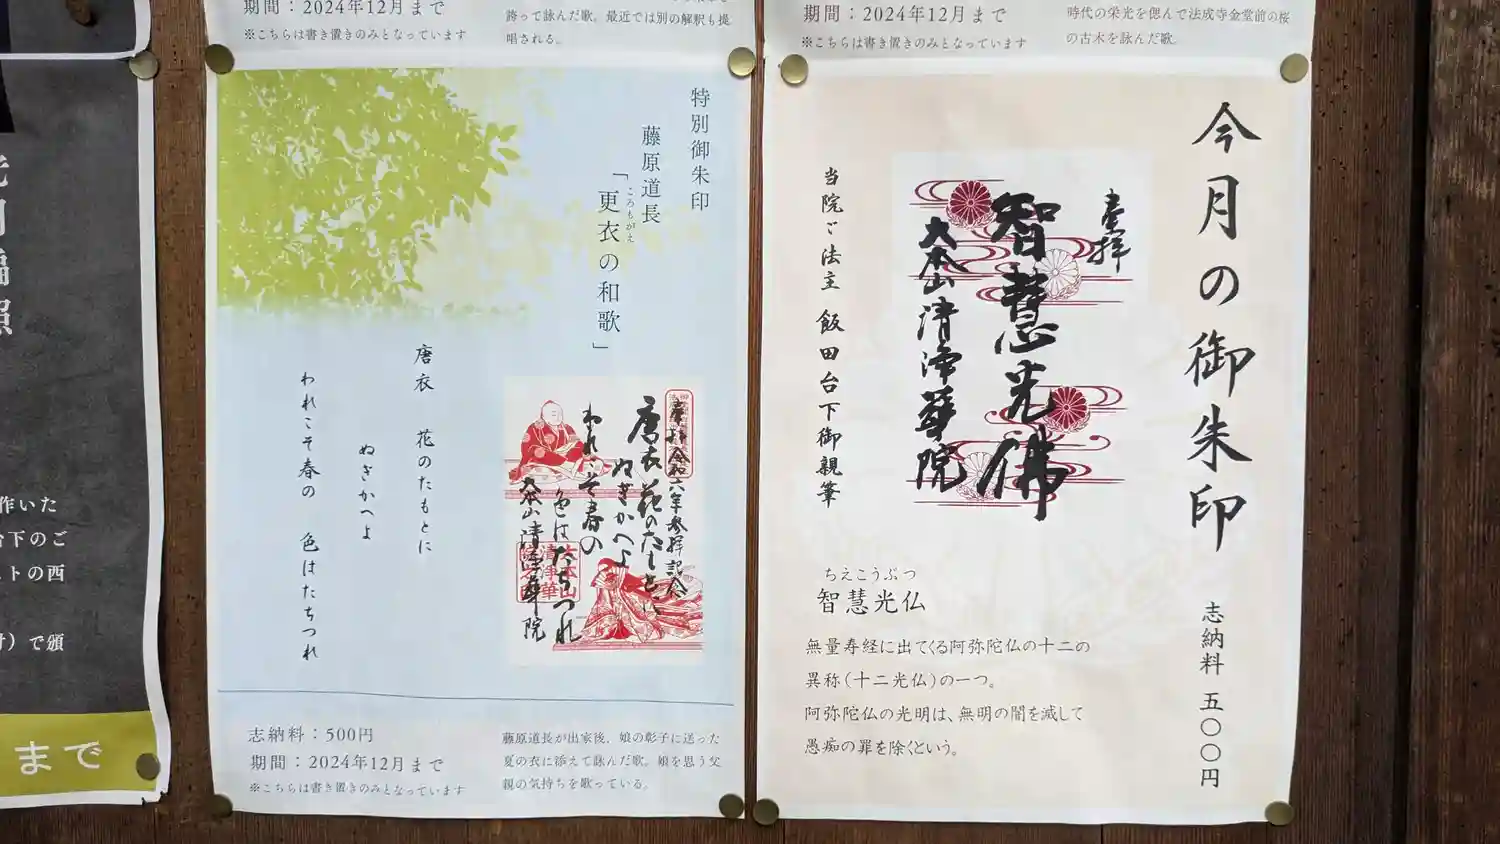 期間：2024年12月まで
※こちらは書き置きのみとなっています
誇って詠んだ歌。最近では別の解釈も提
唱される。
期間：2024年12月まで
※こちらは書き置きのみとなっています
時代の栄光を偲んで法成寺金堂前の桜
の古木を詠んだ歌。
作いた
台下のご
ストの西
で頒
まで
特別御朱印
藤原道長
「更衣の和歌」
ころもがえ
唐衣 花のたもとに
ぬぎかへよ
われこそ春の 色はたちつれ
奉拝 令和六年参拝記念
唐衣花のたもとに
ぬぎかへよ
われこそ春の
色はたちつれ
大本山清浄華院
志納料：500円
期間：2024年12月まで
※こちらは書き置きのみとなっています
藤原道長が出家後、娘の彰子に送った
夏の衣に添えて詠んだ歌。娘を思う父
親の気持ちを歌っている。
今月の御朱印
志納料 五〇〇円
奉拝
智慧光佛
大本山清浄華院
当院ご法主 飯田台下御親筆
ちえこうぶつ
智慧光仏
無量寿経に出てくる阿弥陀仏の十二の
異称（十二光仏）の一つ。
阿弥陀仏の光明は、無明の闇を滅して
愚痴の罪を除くという。